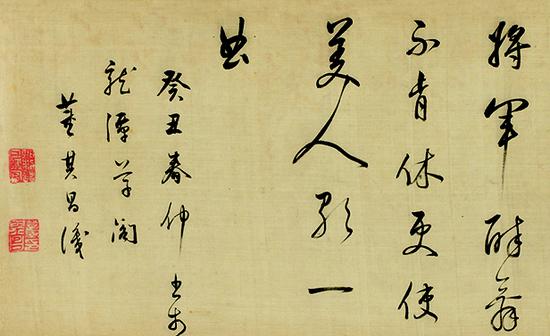 將軍醉舞
不肯休更使
美人一
曲
癸丑春仲書於
龍潭草閣
董其昌識